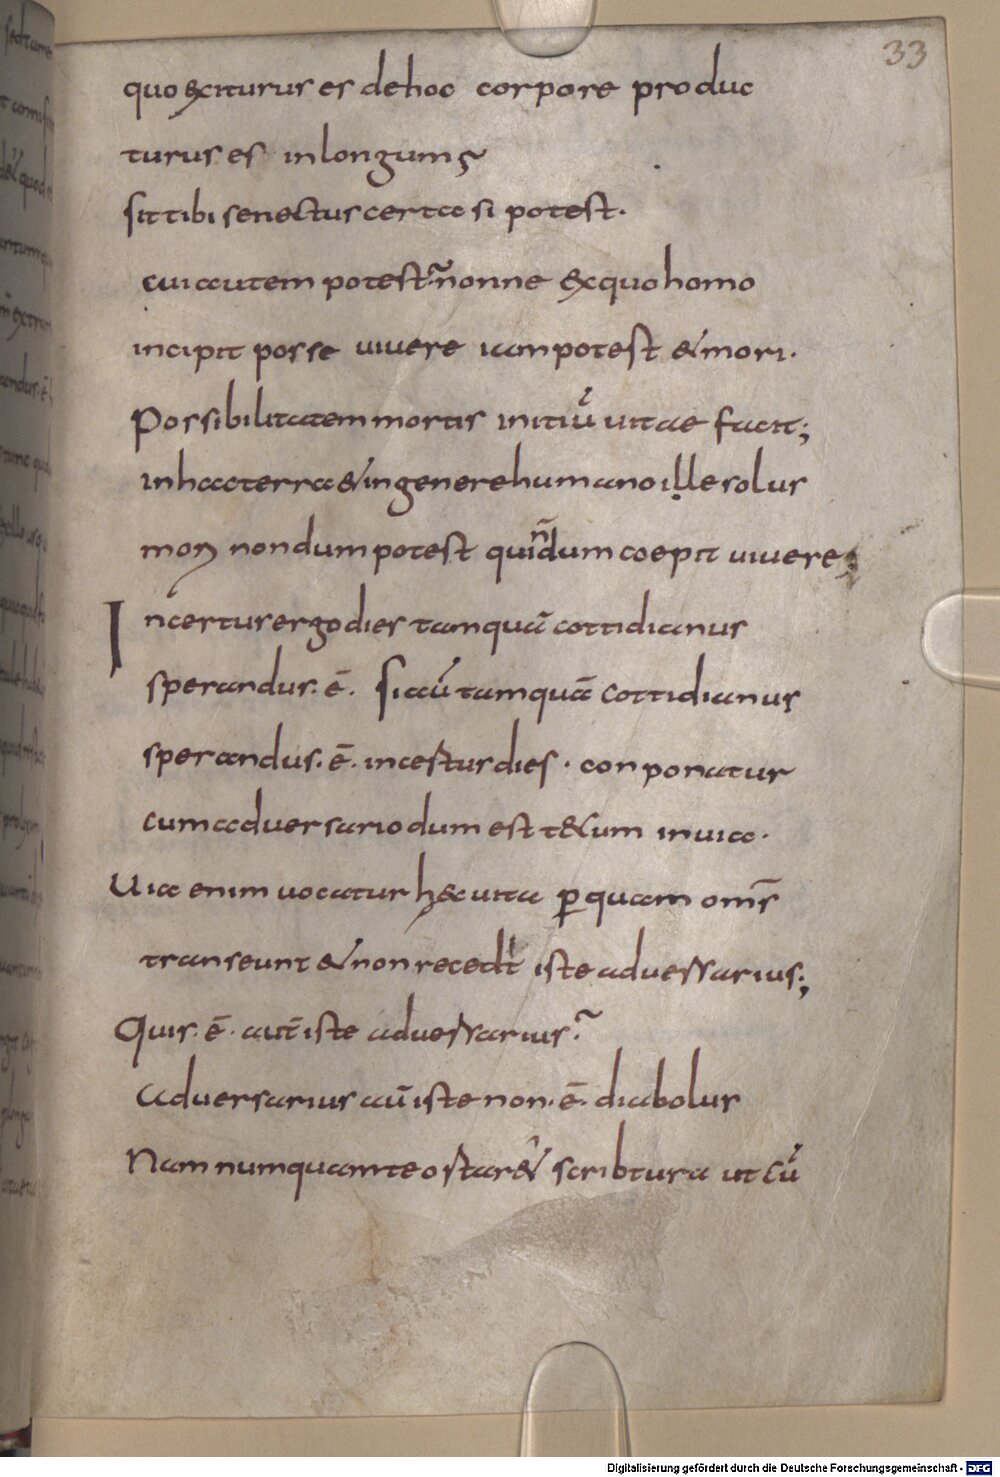 33
quo exiturus es de hoc corpore produc
turus es in longum
sit tibi senectus certa si potest.
cui autem potest? nonne ex quo homo
incipit posse vivere iam potest & mori.
Possibilitatem mortis initiū vitae facit;
in hac terra & in genere humano ille solus
mori nondum potest qui ñdum coepit vivere;
Incertus ergo dies tamquā cottidianus
sperandus .ē. Si aū tamquā cottidianus
sperandus .ē. incestus dies . conponatur
cum adversario dum est t&um in via.
Via enim vocatur h&c vita per quam oms̄
transeunt & non recedit iste adversarius;
Quis .ē. aut̄ iste adversarius?
Adversarius aū iste non .ē. diabolus
Nam numquam te ostar& scribtura ut cū
Digitalisierung gefördert durch die Deutsche Forschungsgemeinschaft - DFG